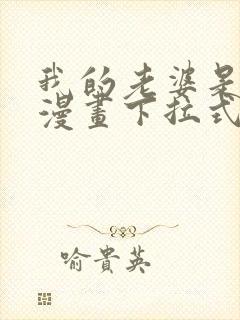 我的老婆是
漫畫下拉式
喻貴英